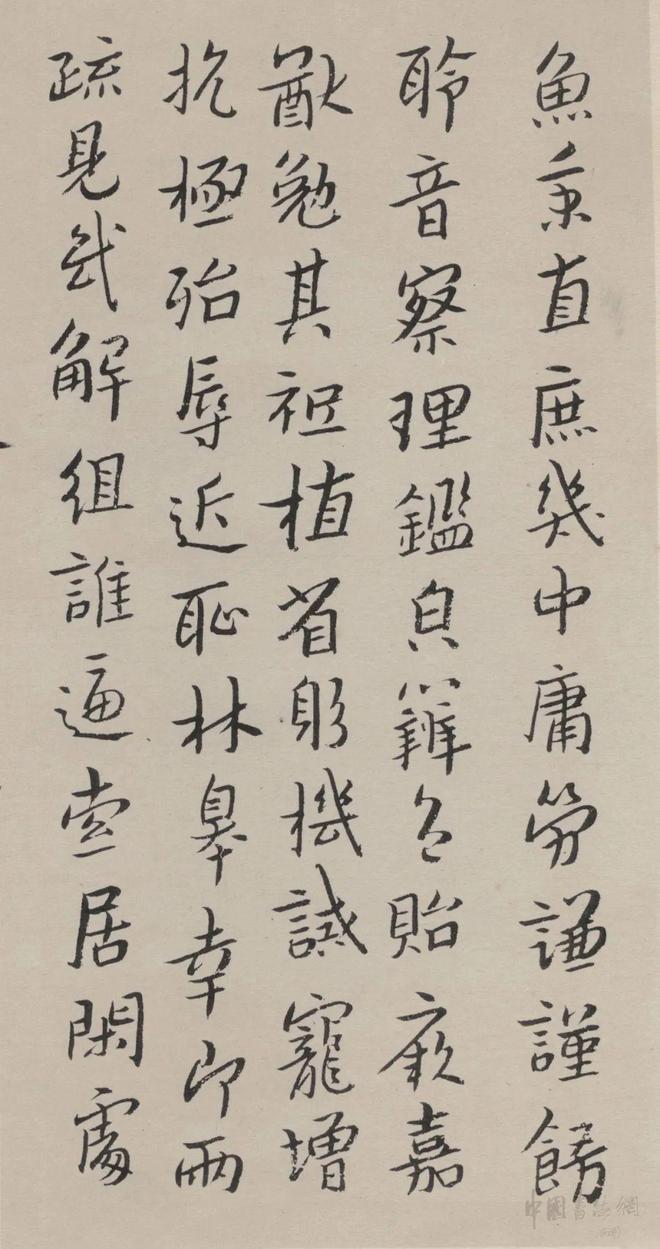 魚秉直庶幾中庸勞謙謹飭
聆音察理鑑皃辨色貽厥嘉
猷勉其祗植省躬機誡寵增
抗極殆辱近恥林皋幸即兩
疏見幾解組誰逼索居閑處
中國書法網